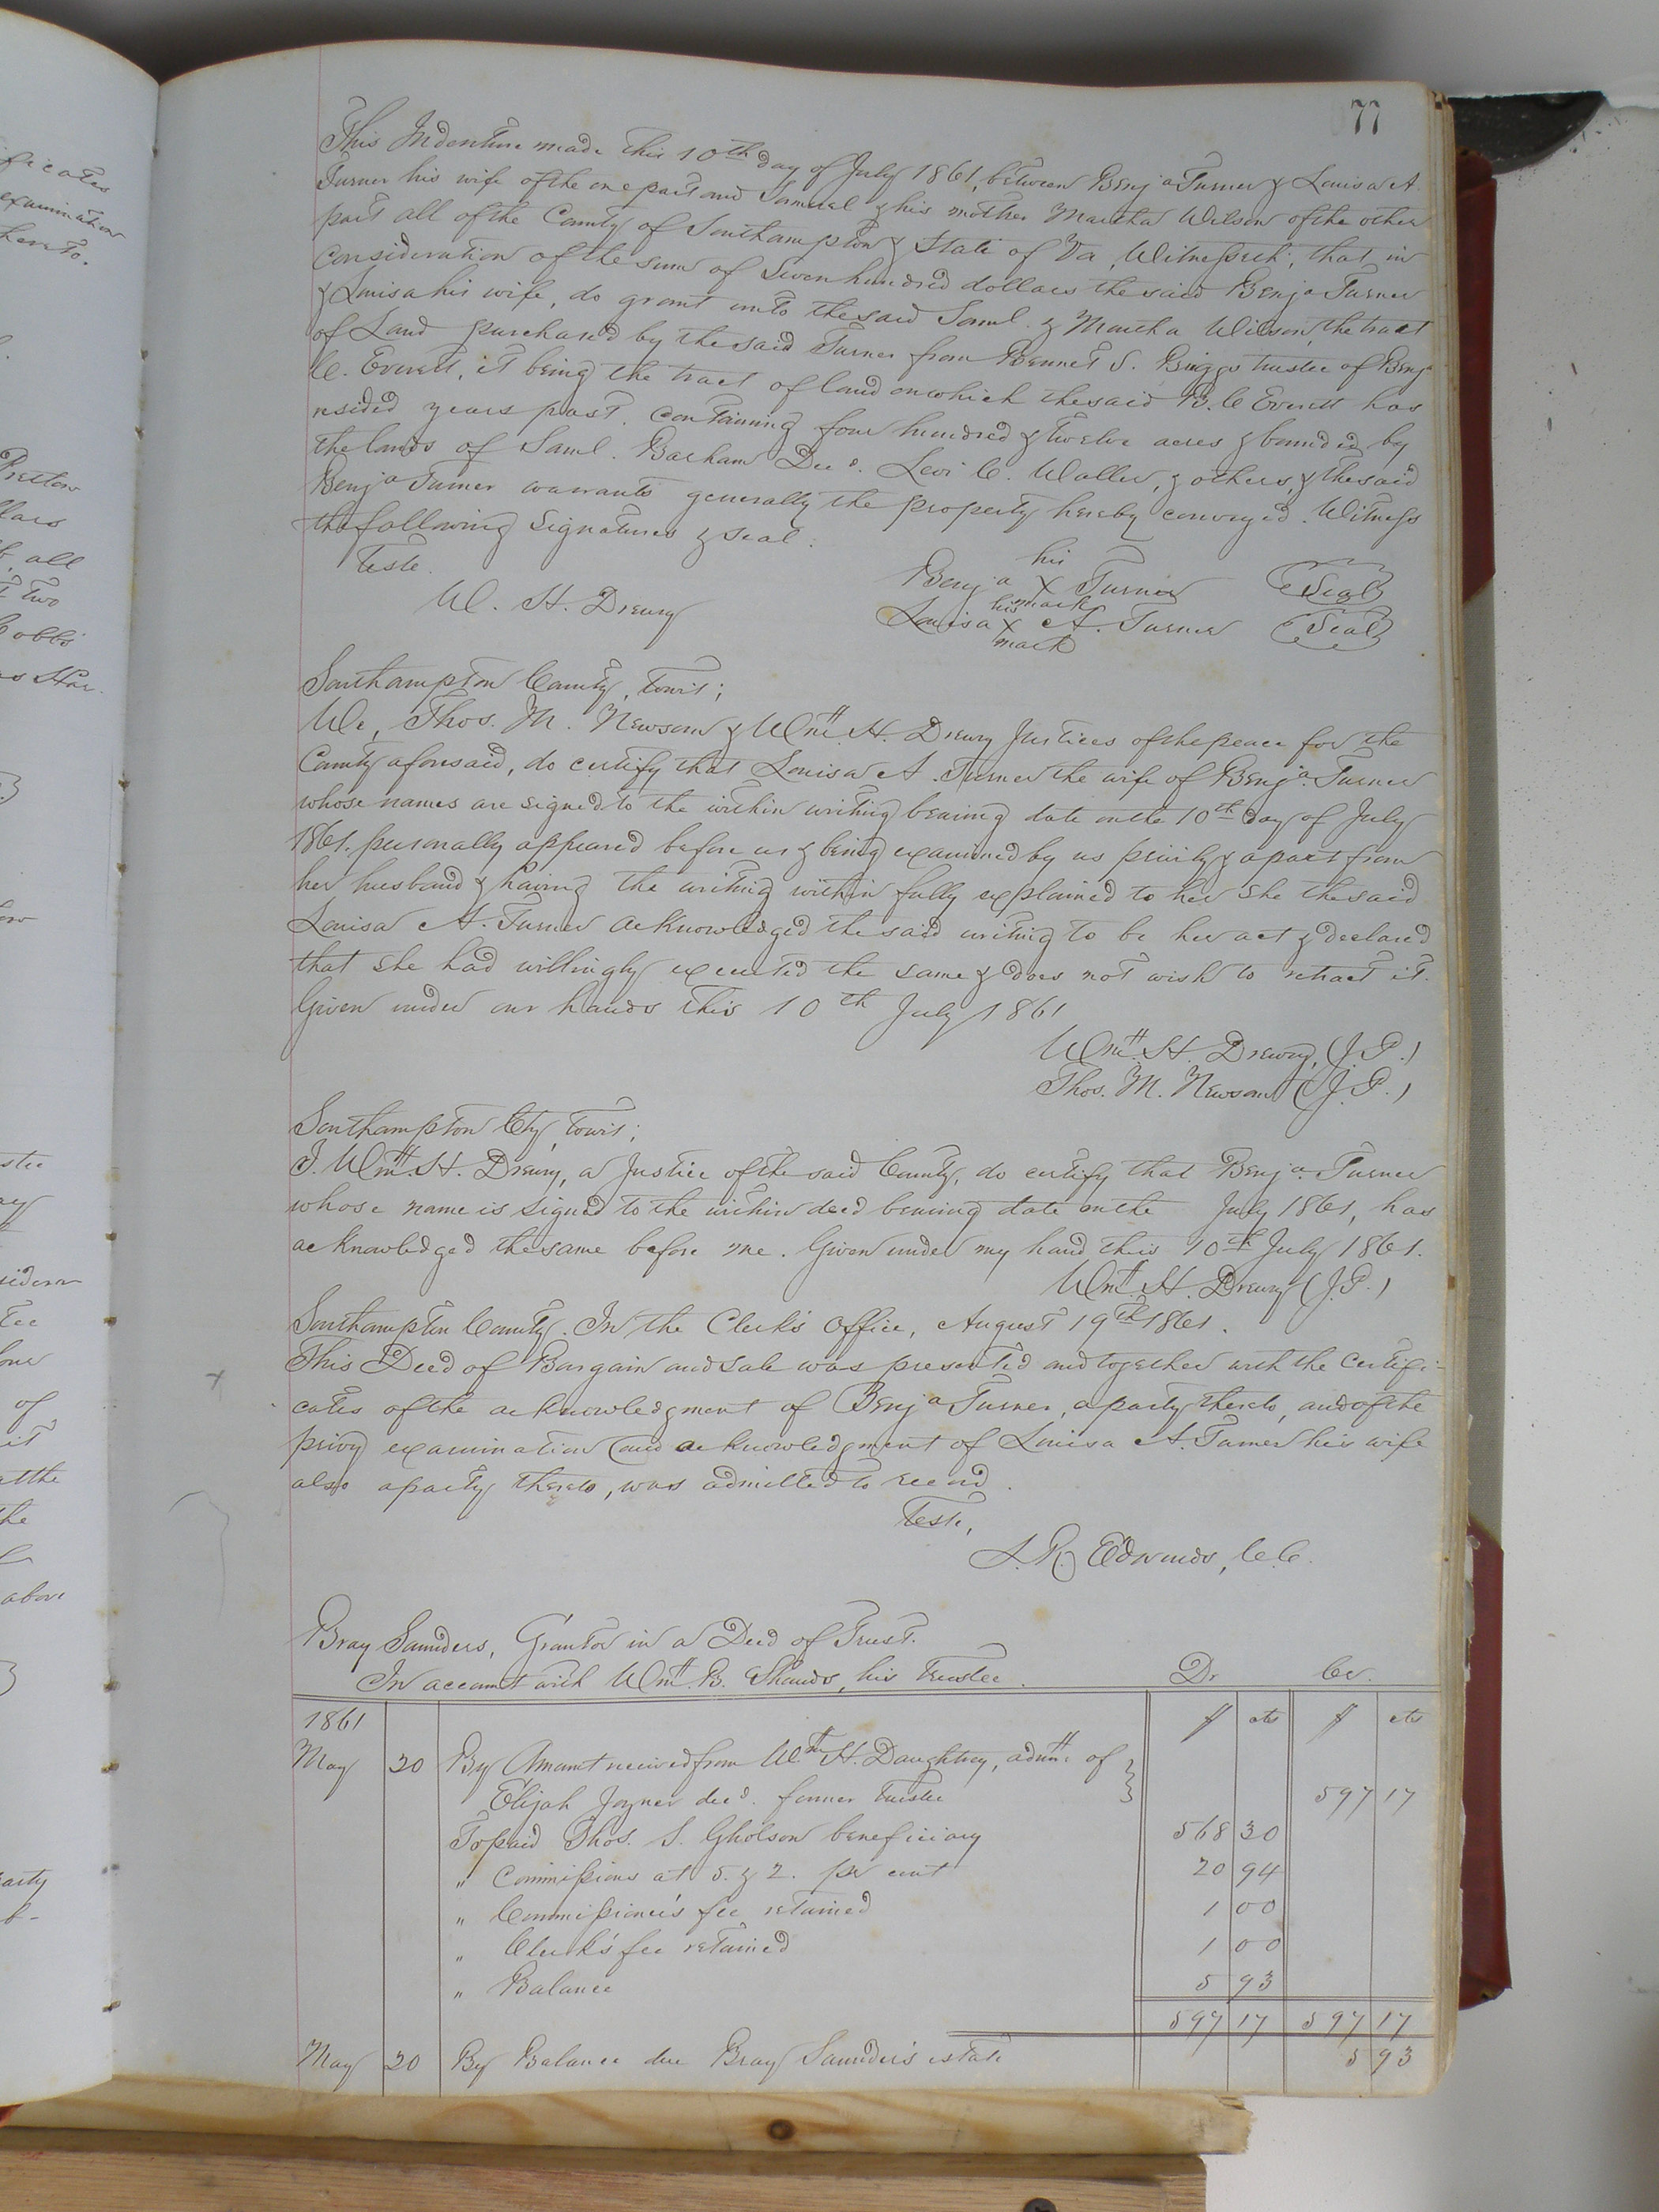 77
This Indenture made this 10th day of July 1861, between Benja Turner & Louisa A.
Turner his wife of the one part and Samuel & his mother Martha Wilson of the other
part all of the County of Southampton & State of Va, Witnesseth, that in
consideration of the sum of Seven hundred dollars the said Benja Turner
& Louisa his wife, do grant unto the said Saml. & Martha Wilson, the tract
of Land purchased by the said Turner from Bennet S. Briggs trustee of Benja
C. Everett, it being the tract of land on which the said B. C Everett has
resided years past. containing four hundred & twelve acres & bounded by
the lands of Saml. Barham Decd. Levi C. Waller, & others, & the said
Benja Turner warrants generally the property hereby conveyed. Witness
the following signatures & seal.
Teste.
his
Benja X Turner (Seal)
mark
W. H. Drewry
his
Louisa X A. Turner (Seal)
mark
Southampton County, towit;
We, Thos. M. Newsom & Wm. H. Drewry Justices of the peace for the
County aforesaid, do certify that Louisa A. Turner the wife of Benja. Turner
whose names are signed to the within writing bearing date on the 10th day of July
1861. personally appeared before us & being examined by us privily & apart from
her husband & having the writing within fully explained to her she the said
Louisa A. Turner acknowledged the said writing to be her act & declared
that she had willingly executed the same & does not wish to retract it.
Given under our hands this 10th July 1861
Wm. H. Drewry, (J. P.)
Thos. M. Newsom (J. P.)
Southampton Cty, towit;
I. Wm. H. Drewry, a Justice of the said County, do certify that Benja. Turner
whose name is signed to the within deed bearing date on the July 1861, has
acknowledged the same before me. Given under my hand this 10th July 1861.
Wm H. Drewry (J. P.)
Southampton County. In the Clerk's Office, August 19th 1861.
This Deed of Bargain and sale was presented and together with the certifi-
cates of the acknowledgment of Benja Turner, a party thereto, and of the
privy examination and acknowledgment of Louisa A. Turner his wife
also a party thereto, was admitted to record.
Teste,
L. R. Edwards, C. C.
Bray Saunders, Grantor in a Deed of Trust.
In account with Wm. B. Shands, his trustee. Dr Cr.
1861 $ cts $ cts
May 20 By Amount received from Wm H. Daughtrey, admr. of
Elijah Joyner decd. former trustee 597 17
To paid Thos. S. Gholson beneficiary 568 30
" Commissions at 5. & 2. per cent 20 94
" Commissioner's fee retained 1 00
" Clerk's fee retained 1 00
" Balance 5 93
597 17 597 17
May 20 By Balance due Bray Saunders's estate 5 93